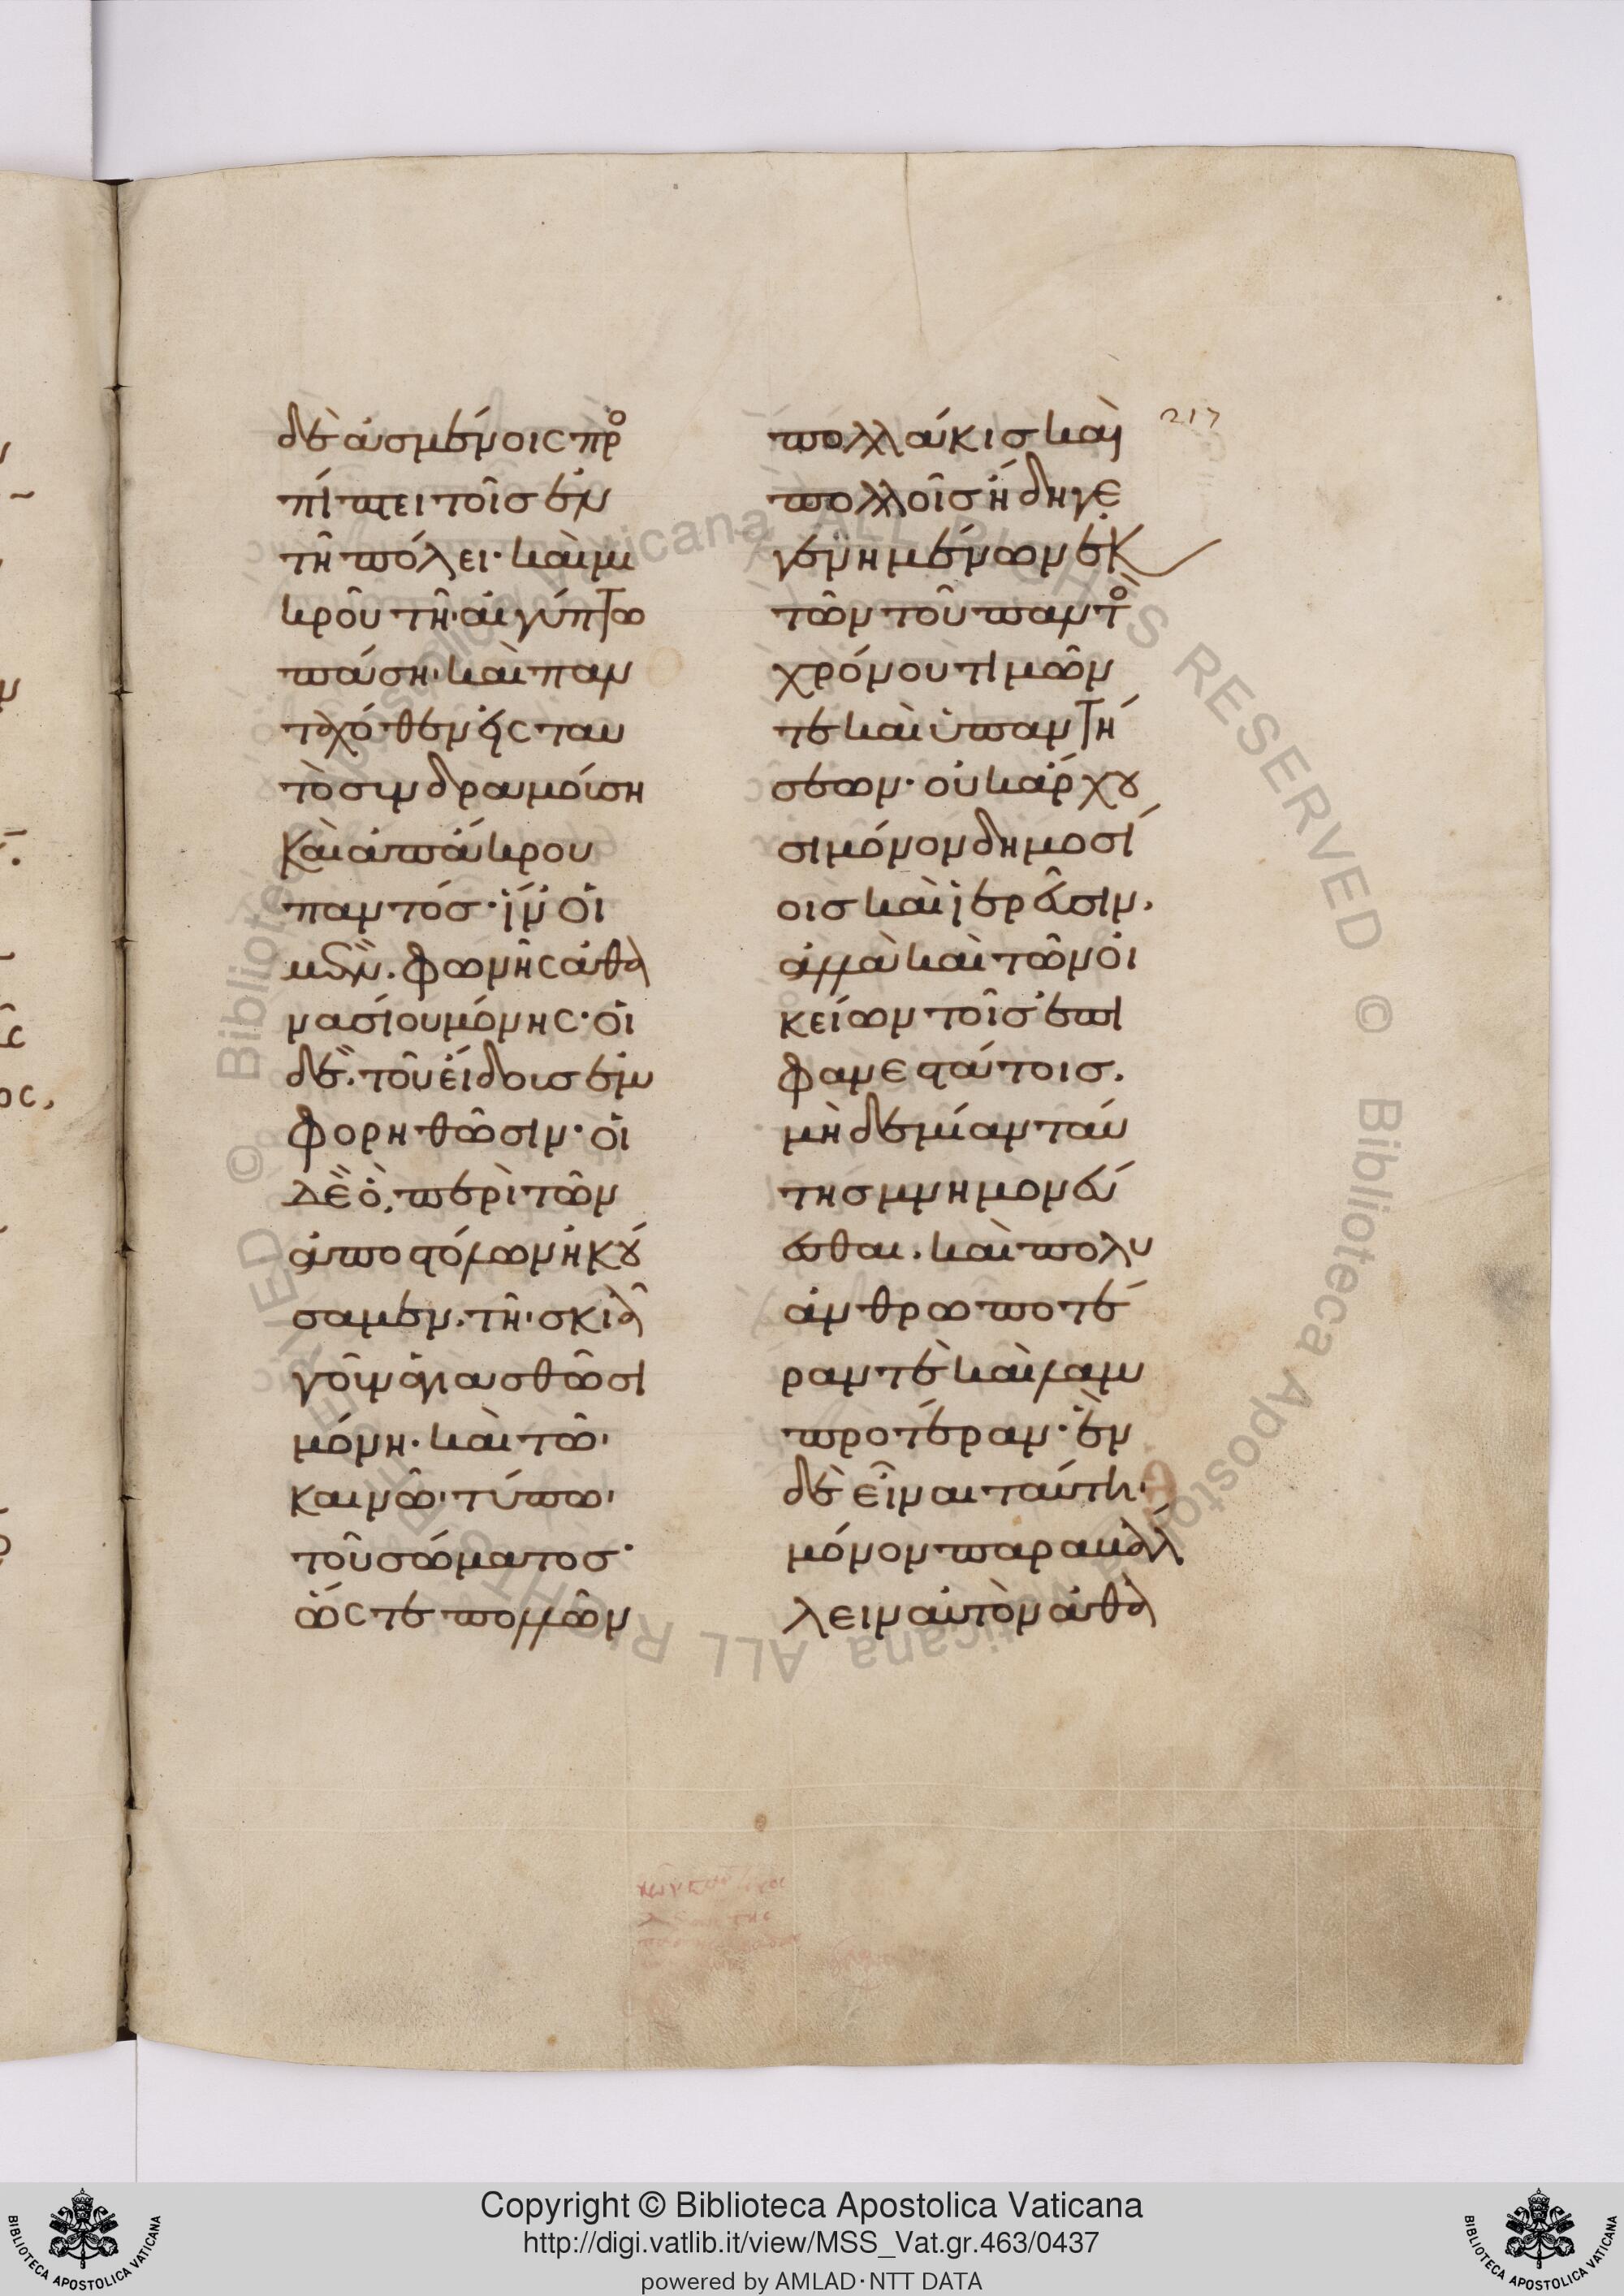 δὲ ἀσμένοις προ
πίπτει τοῖς ἐν
τῆ πόλει· καὶ μι
κροῦ τῆ· αἰγύπτω
πάση· καὶ παν
ταχόθεν εἰς ταυ
τὸ συνδραμούση
καὶ ἀπ' ἄκρου
παντός· ἵν' οἱ
μὲν. φωνῆς ἀθα
νασίου μόνης· οἱ
δὲ. τοῦ εἴδους ἐμ
φορηθῶσιν· οἱ
δὲ ὃ. περὶ τῶν
ἀποστόλων ἠκού
σαμεν. τῆ· σκιᾶ
γοῦν ἁγιασθῶσι
μόνη· καὶ τῶ·
καινῶ· τύπω·
τοῦ σώματος·
ὥς τε πολλῶν
πολλάκις καὶ
πολλοῖς ἤδη γε
γενημένων ἐκ
τῶν τοῦ παντὸ
χρόνου τιμῶν
τε καὶ ὑπαντή
σεων· οὐκ ἄρχου
σι μόνον δημοσί
οις καὶ ἱερεῦσιν.
ἀλλὰ καὶ τῶν οἰ
κείων τοῖς ἐπι
φανεστάτοις.
μὴ δεμίαν ταύ
της μνημονεύ
εσθαι. καὶ πολυ
ἀνθρωποτέ
ραν τὲ καὶ λαμ
προτέραν· ἓν
δὲ εἶναι ταύτη·
μόνον παραβάλ
λειν αὐτὸν ἀθα
217
Copyright © Biblioteca Apostolica Vaticana
http://digi.vatlib.it/view/MSS_Vat.gr.463/0437
powered by AMLAD·NTT DATA
BIBLIOTECA APOSTOLICA VATICANA
BIBLIOTECA APOSTOLICA VATICANA